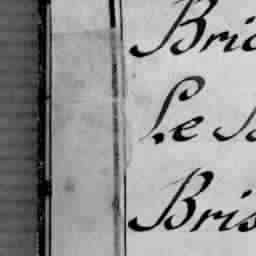 Bric
Le S
Bris